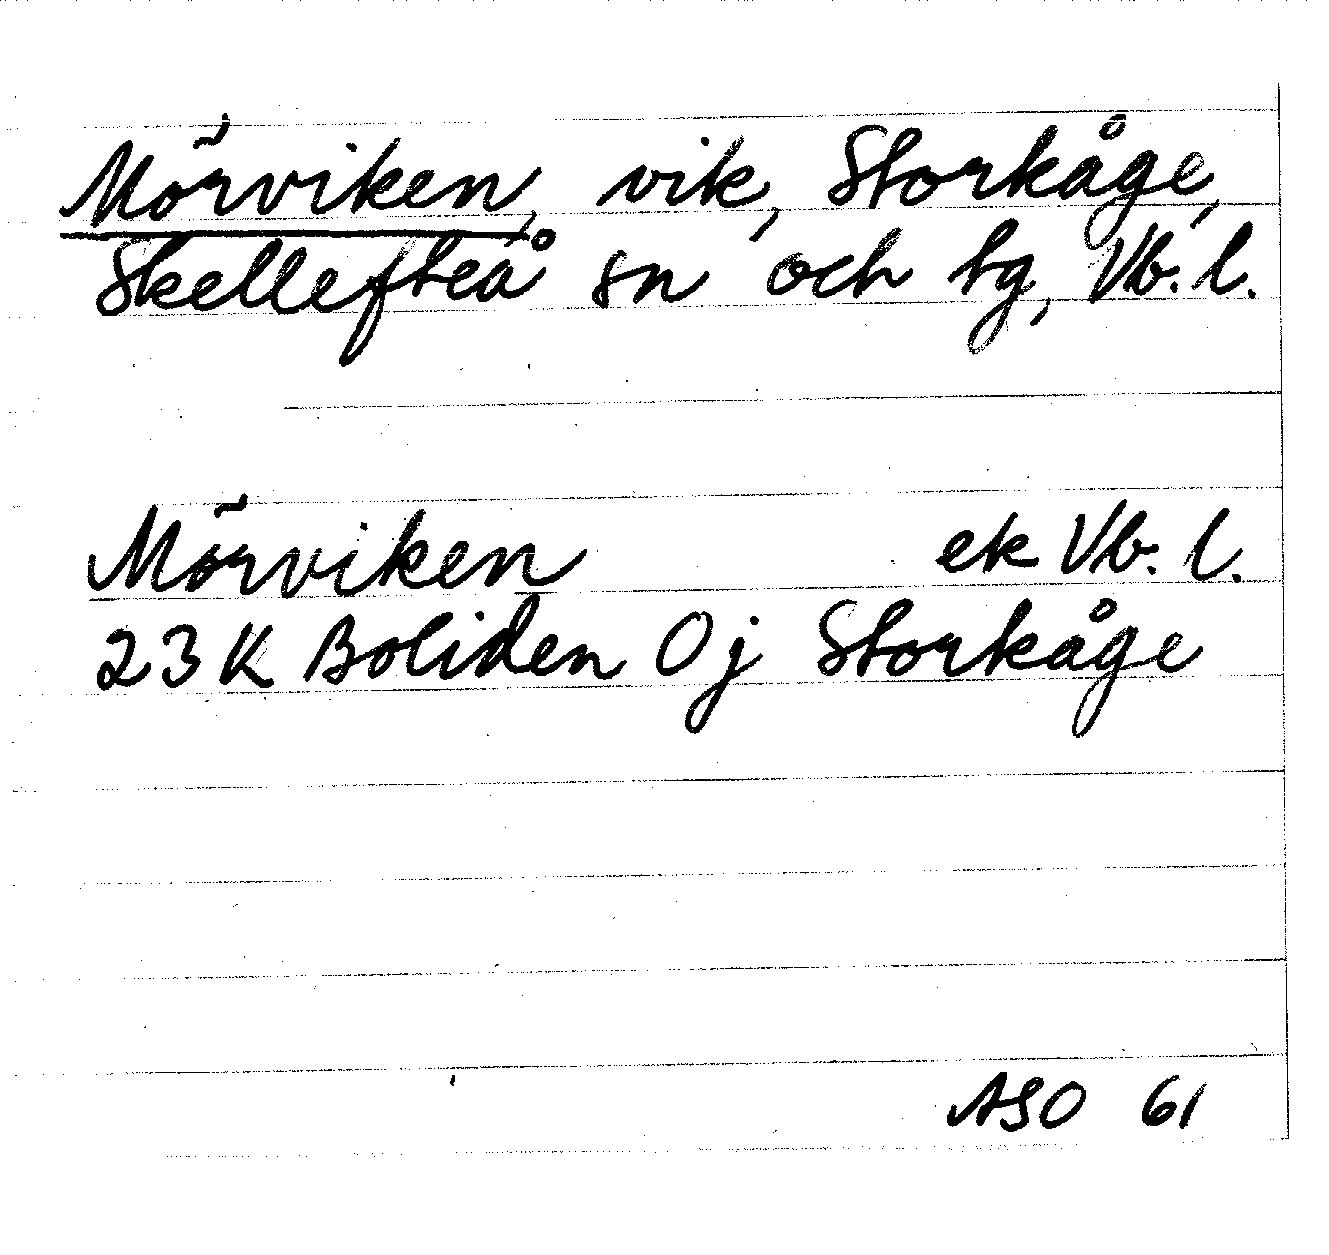 Mörviken, vik, Storkåge,
Skellefteå sn och tg, Vb. l.
Mörviken ek Vb. l.
23 K Boliden 0 j Storkåge
ASO 61